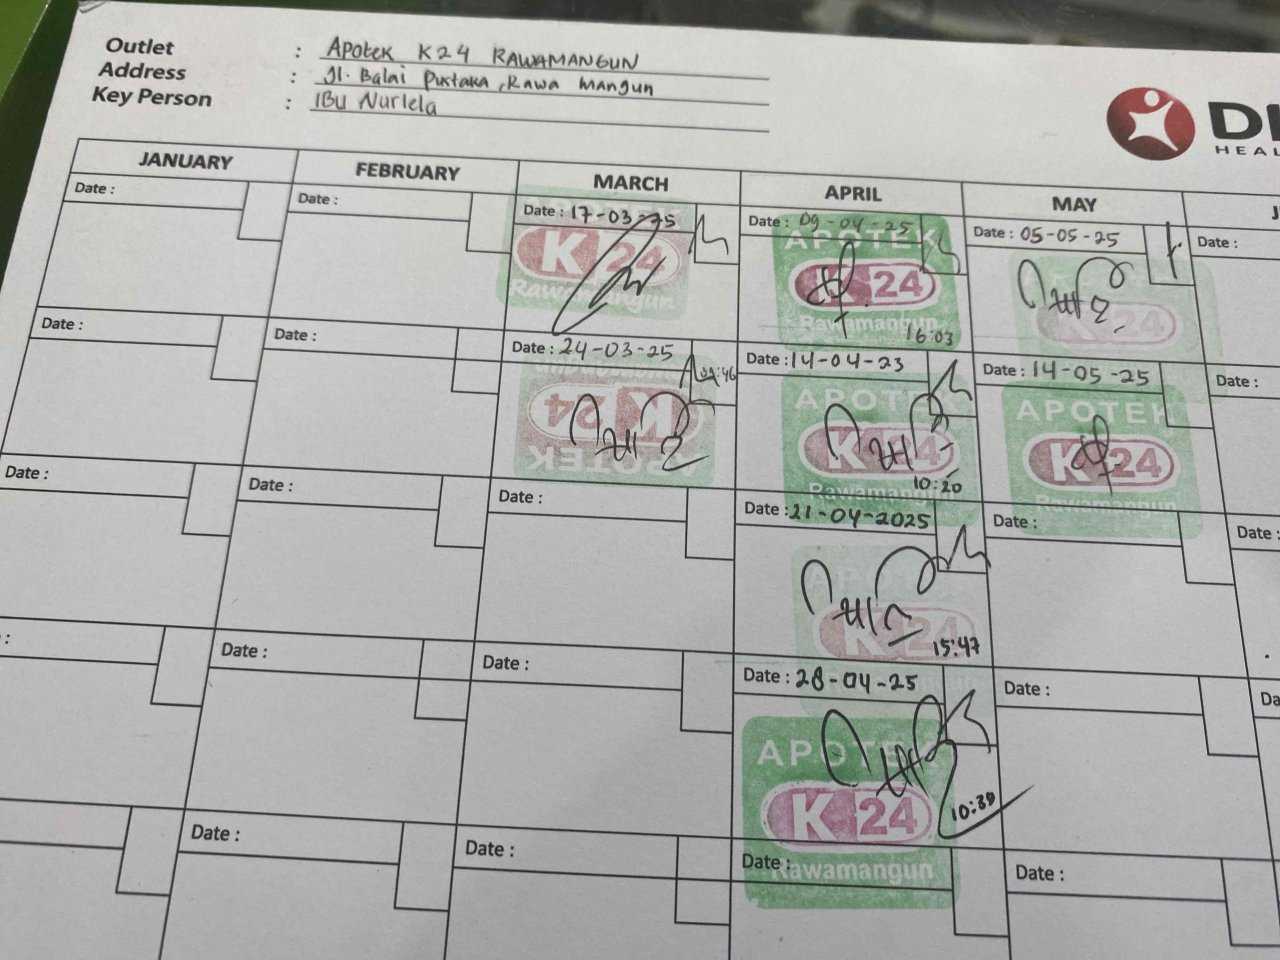 Outlet : APOTEK K24 RAWAMANGUN
Address : Jl. Balai Pustaka, Rawa Mangun
Key Person : IBU Nurlela
JANUARY FEBRUARY MARCH APRIL MAY
Date : Date : Date : 17-03-25 Date : 09-04-25 Date : 05-05-25 Date :
APOTEK
K 24
Rawamangun
APOTEK
K 24
Rawamangun
16:03
K 24
Date : Date : Date : 24-03-25 Date : 14-04-23 Date : 14-05-25 Date :
K 24
APOTEK
APOTEK
K 24
Rawamangun
10:20
APOTEK
K 24
Rawamangun
Date : Date : Date : Date : 21-04-2025 Date : Date :
APOTEK
K 24
15:47
: Date : Date : Date : 28-04-25 Date : Da
APOTEK
K 24
Rawamangun
10:30
Date : Date : Date : Date :
HEAL